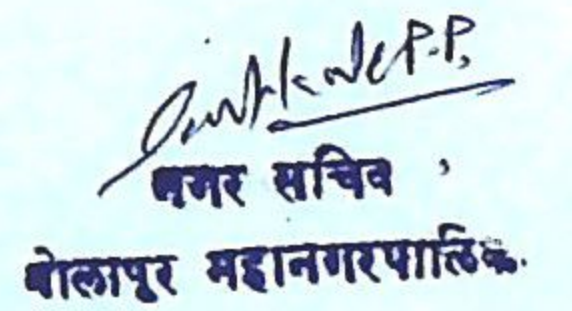 P.P.
नगर सचिव,
सोलापुर महानगरपालिका.